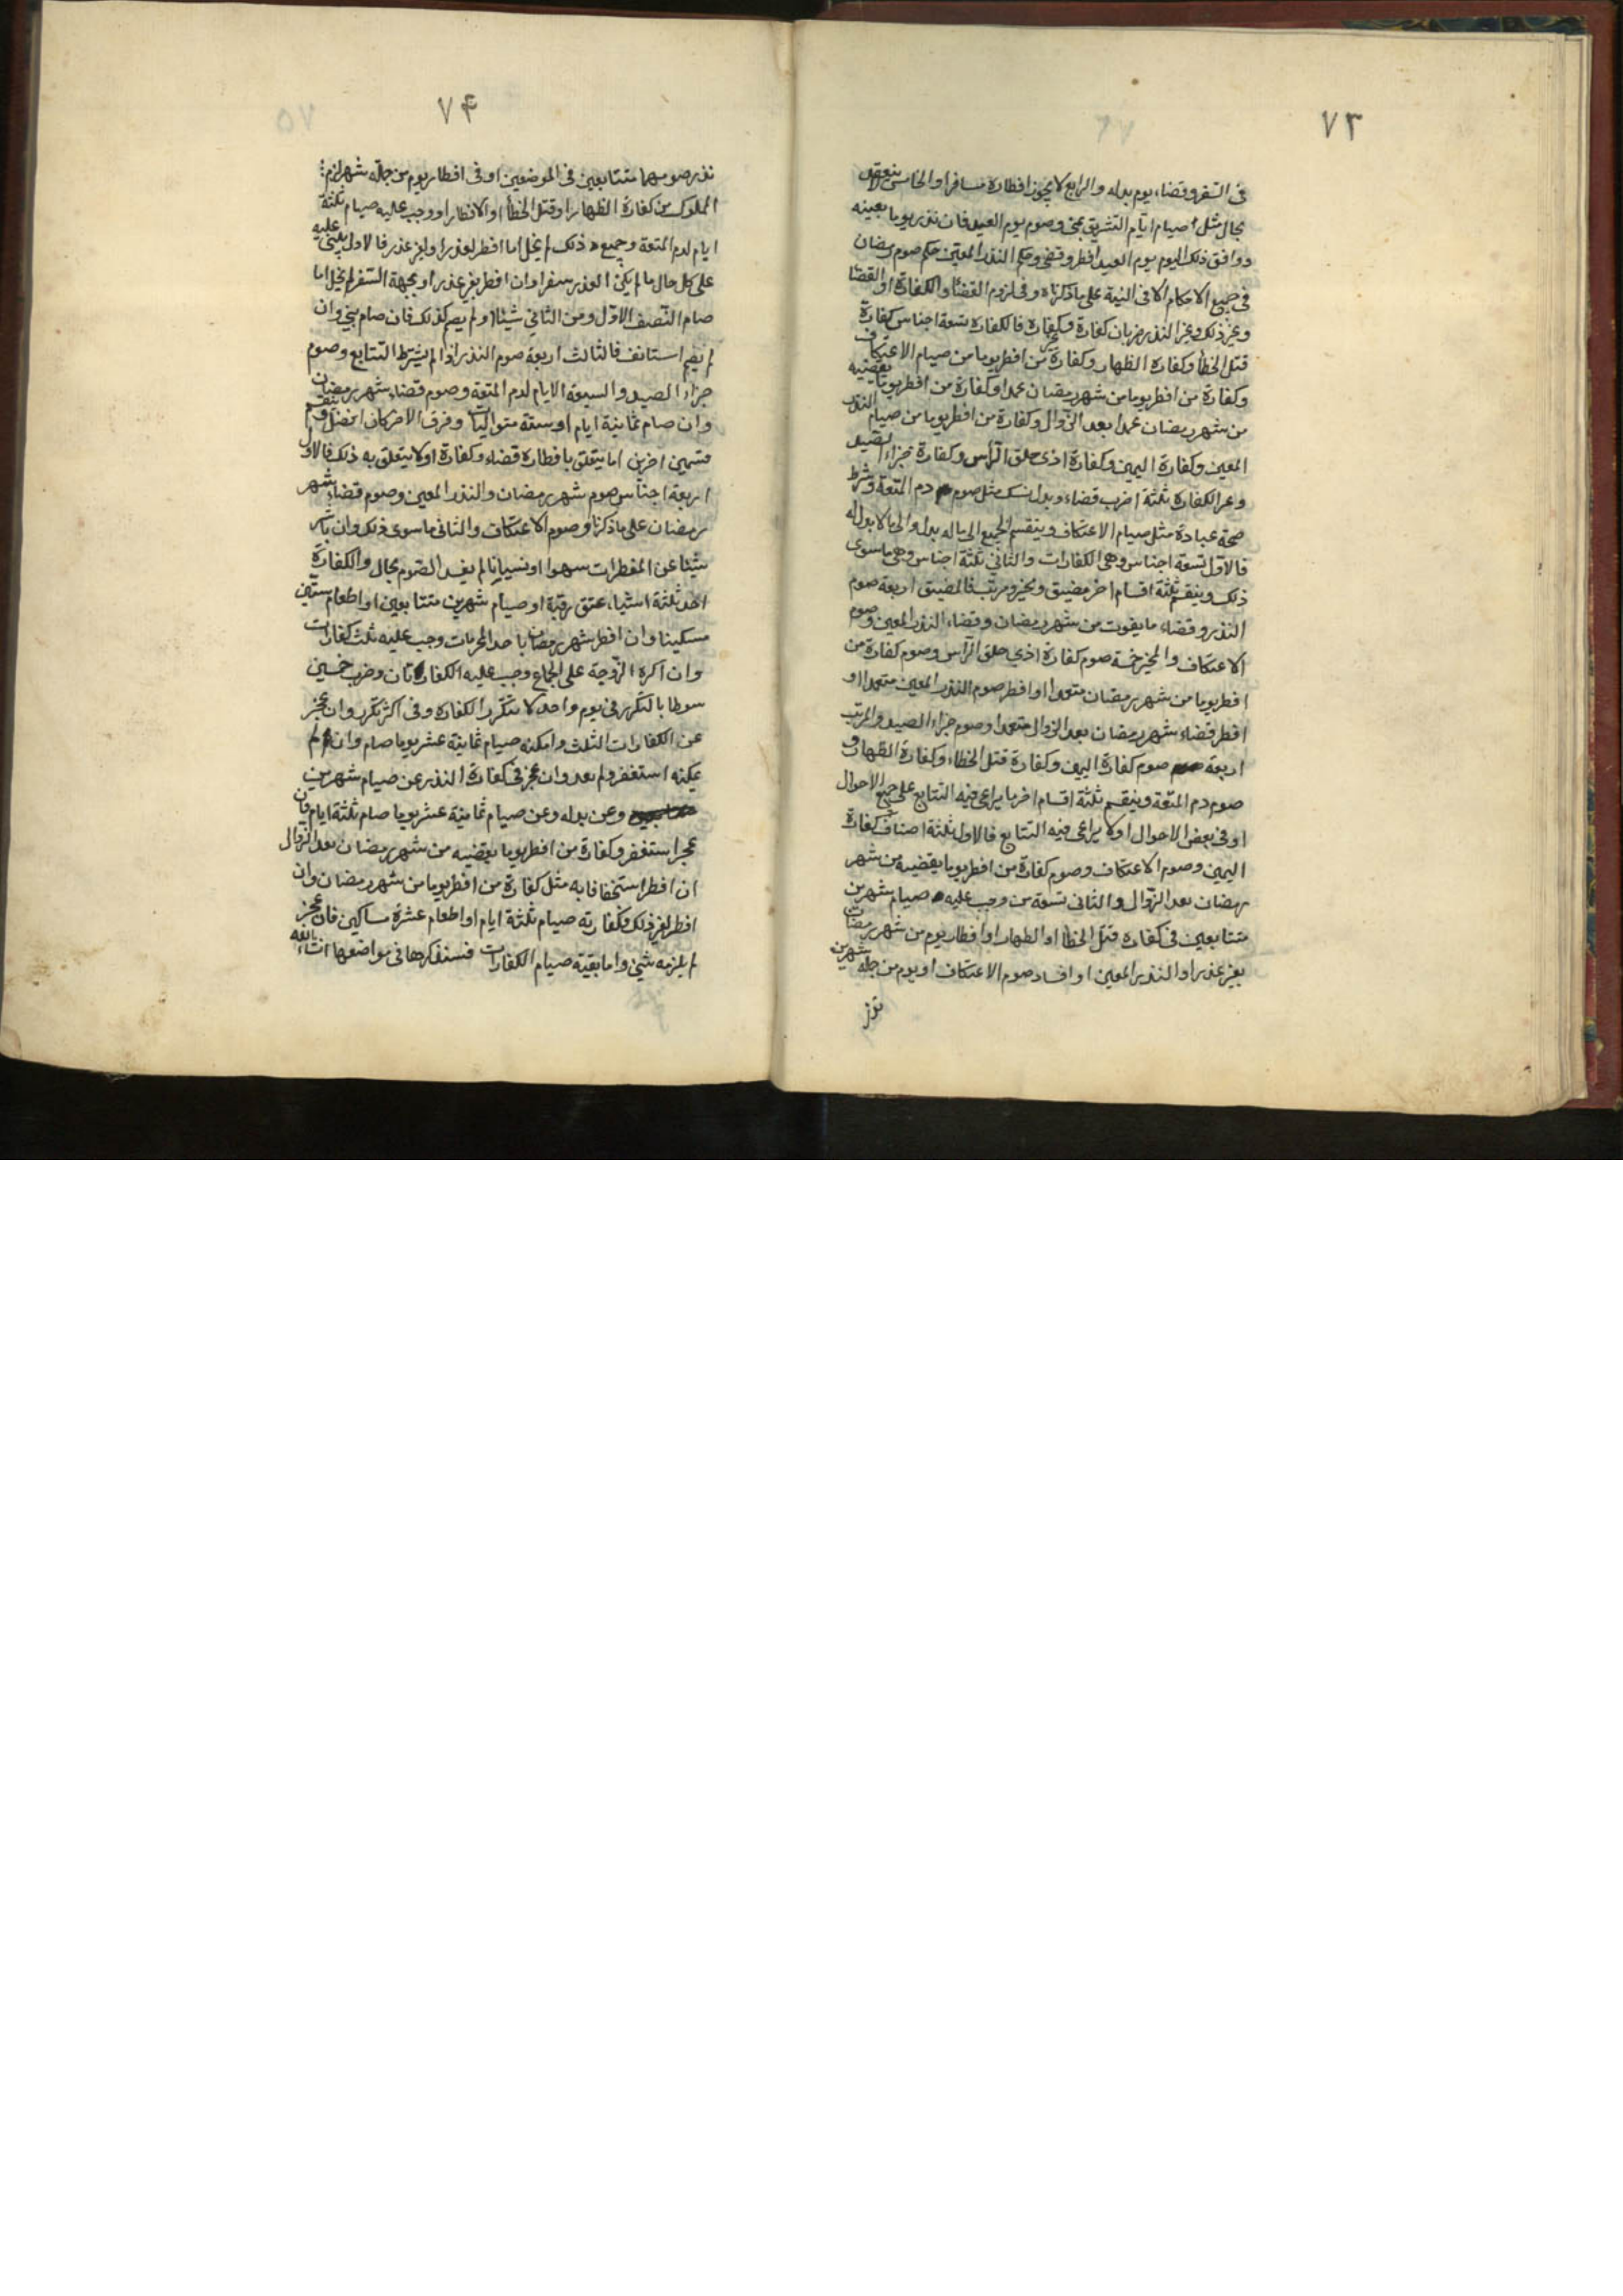 ٧٣
فى السفر وقضاء يوم بدله والرابع لا يجوز افطاره مسافرا والخامس لا ينعقد
بحال مثل صيام ايام التشريق بمنى وصوم يوم العيد فان نذر يوما بعينه
ووافق ذلك اليوم يوم العيد افطر وقضى وحكم النذر المعين حكم صوم رمضان
فى جميع الاحكام الا فى النية على ما ذكرناه وفى لزوم القضاء والكفارة او القضا
وغير ذلك وغير النذر ضربان كفارة وغير كفارة فالكفارة تسعة اجناس كفارة
قتل الخطأ وكفارة الظهار وكفارة من افطر يوما من صيام الاعتكاف
وكفارة من افطر يوما من شهر رمضان عمدا وكفارة من افطر يوما يقضيه
من شهر رمضان عمدا بعد الزوال وكفارة من افطر يوما من صيام النذر
المعين وكفارة اليمين وكفارة اذى حلق الرأس وكفارة جزاء الصيد
وغير الكفارة ثلثة اضرب قضاء وبدل نسك مثل صوم دم المتعة وشرط
صحة عبادة مثل صيام الاعتكاف وينقسم الجميع الى ما له بدل والى ما لا بدل له
فالاول تسعة اجناس وهى الكفارات والثانى ثلثة اجناس وهى ما سوى
ذلك وينقسم ثلثة اقسام اخر مضيق ومخير ومرتب فالمضيق اربعة صوم
النذر وقضاء ما يفوت من شهر رمضان وقضاء النذر المعين وصوم
الاعتكاف والمخير خمسة صوم كفارة اذى حلق الرأس وصوم كفارة من
افطر يوما من شهر رمضان متعمدا او افطر صوم النذر المعين متعمدا او
افطر قضاء شهر رمضان بعد الزوال متعمدا وصوم جزاء الصيد والمرتب
اربعة صوم كفارة اليمين وكفارة قتل الخطاء وكفارة الظهار و
صوم دم المتعة وينقسم ثلثة اقسام اخر ما يراعى فيه التتابع على جميع الاحوال
او فى بعض الاحوال او لا يراعى فيه التتابع فالاول ثلثة اصناف كفارة
اليمين وصوم الاعتكاف وصوم كفارة من افطر يوما يقضيه من شهر
رمضان بعد الزوال والثانى تسعة من وجب عليه صيام شهرين
متتابعين فى كفارة قتل الخطأ او الظهار او افطار يوم من شهر رمضان
بغير عذر او النذر المعين او افساد صوم الاعتكاف او يوم من جملة شهرين
نذر
٧۴
نذر صومهما متتابعين فى الموضعين او فى افطار يوم من جملة شهر لزم
المملوك من كفارة الظهار او قتل الخطأ او الافطار او وجب عليه صيام ثلثة
ايام لدم المتعة وجميع ذلك لم يخل اما افطر لعذر او لغير عذر فالاول يبنى عليه
على كل حال ما لم يكن العذر سفرا وان افطر بغير عذر او بجهة السفر لم يخل اما
صام النصف الاول ومن الثانى شيئا او لم يصم كذلك فان صام بنى وان
لم يصم استانف فالثالث اربعة صوم النذر اذا لم يشترط التتابع وصوم
جزاء الصيد والسبعة الايام لدم المتعة وصوم قضاء شهر رمضان
وان صام ثمانية ايام او ستة متواليات وفرق الاخر كان افضل وينقسم
قسمين اخرين اما يتعلق بافطاره قضاء وكفارة او لا يتعلق به ذلك فالاول
اربعة اجناس صوم شهر رمضان والنذر المعين وصوم قضاء شهر
رمضان على ما ذكرنا وصوم الاعتكاف والثانى ما سوى ذلك وان باشر
شيئا عن المفطرات سهوا او نسيانا لم يفسد الصوم بحال والكفارة
احد ثلثة اشياء عتق رقبة او صيام شهرين متتابعين او اطعام ستين
مسكينا وان افطر شهر رمضان باحد المحرمات وجب عليه ثلث كفارات
وان اكره الزوجة على الجماع وجب عليه الكفارتان وضرب خمسين
سوطا بالتكرر فى يوم واحد لا تتكرر الكفارة وفى اكثر تكرر وان عجز
عن الكفارات الثلث وامكنه صيام ثمانية عشر يوما صام وان لم
يمكنه استغفر ولم يعد وان عجز فى كفارة النذر عن صيام شهرين
وعن بدله وعن صيام ثمانية عشر يوما صام ثلثة ايام فان
عجز استغفر وكفارة من افطر يوما يقضيه من شهر رمضان بعد الزوال
ان افطر استخفافا به مثل كفارة من افطر يوما من شهر رمضان وان
افطر لغير ذلك فكفارته صيام ثلثة ايام او اطعام عشرة مساكين فان عجز
لم يلزمه شئ واما بقية صيام الكفارات فسنذكرها فى مواضعها انشاء الله